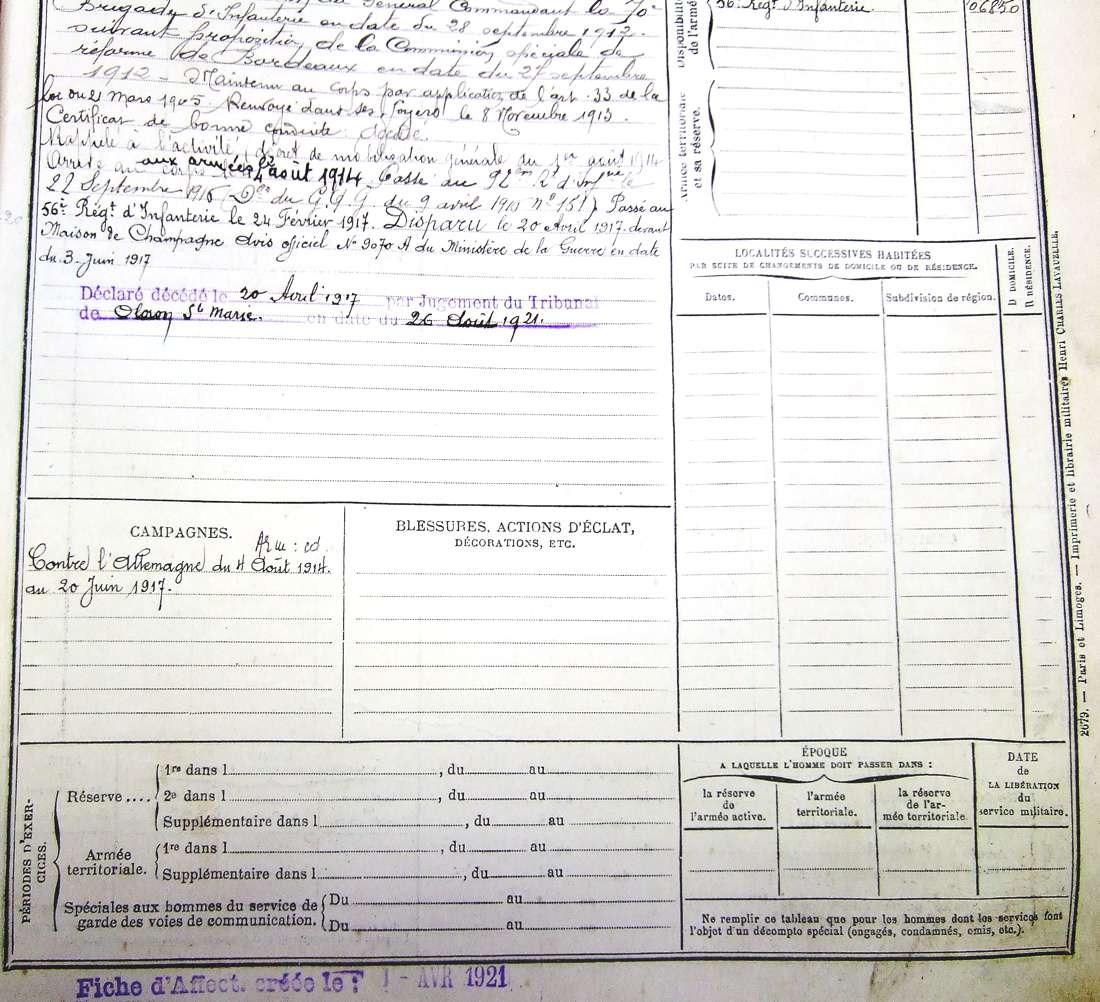 Général Commandant la 70e
Brigade d'Infanterie en date du 28 septembre 1912.
suivant proposition de la Commission spéciale de
réforme de Bordeaux en date du 27 septembre
1912 - Maintenu au corps par application de l'art. 33 de la
loi du 21 Mars 1905. Renvoyé dans ses foyers le 8 Novembre 1913
Certificat de bonne conduite
Rappelé à l'activité, décret de mobilisation générale du 1er août 1914
Arrivé au corps aux armées le 4 août 1914. Passé au 92em Rt d'Infrie le
22 Septembre 1916 (Don du G.Q.G. du 9 avril 1915 no 151) Passé au
56e Régt d'Infanterie le 24 Février 1917. Disparu le 20 Avril 1917 devant
Maison de Champagne Avis officiel No 9070 A du Ministère de la Guerre en date
du 3 Juin 1917
Déclaré décédé le 20 Avril 1917 par Jugement du Tribunal
de Oloron Ste Marie. en date du 26 Août 1921.
Disponibilité
de l'armée
56e Régt d'Infanterie 06850
Armée territoriale
et sa réserve.
LOCALITÉS SUCCESSIVES HABITÉES
PAR SUITE DE CHANGEMENTS DE DOMICILE OU DE RÉSIDENCE.
Dates. Communes. Subdivision de région. D DOMICILE. R RÉSIDENCE.
CAMPAGNES.
Contre l'Allemagne du 4 Août 1914.
au 20 Juin 1917.
BLESSURES, ACTIONS D'ÉCLAT,
DÉCORATIONS, ETC.
PÉRIODES D'EXER-
CICES.
Réserve....
1re dans l , du au
2e dans l , du au
Supplémentaire dans l , du au
Armée
territoriale.
1re dans l , du au
Supplémentaire dans l , du au
Spéciales aux hommes du service de
garde des voies de communication.
Du au
Du au
ÉPOQUE
A LAQUELLE L'HOMME DOIT PASSER DANS :
la réserve
de
l'armée active.
l'armée
territoriale.
la réserve
de l'ar-
mée territoriale.
DATE
de
LA LIBÉRATION
du
service militaire.
Ne remplir ce tableau que pour les hommes dont les services font
l'objet d'un décompte spécial (engagés, condamnés, omis, etc.).
2679. — Paris et Limoges. — Imprimerie et librairie militaires Henri CHARLES LAVAUZELLE.
Fiche d'Affect. créée le : 1 - AVR 1921